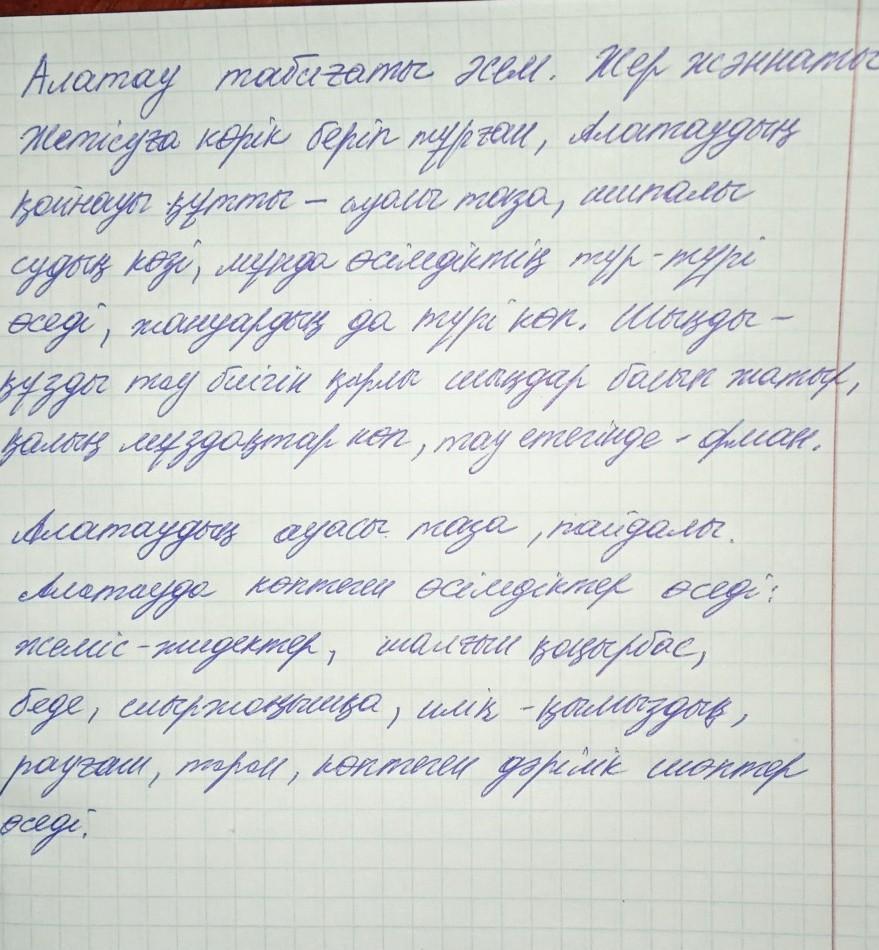 Алатау табиғаты әсем. Жер жәннаты
Жетісуға көрік беріп тұрған, Алатаудың
қойнауы құтты – ауасы таза, шипалы
судың көзі, мұнда өсімдіктің түр-түрі
өседі, жануардың да түрі көп. Шыңды-
құзды тау биігін қарлы шыңдар басып жатыр,
қалың мұздақтар көп, тау етегінде - орман.
Алатаудың ауасы таза, пайдалы.
Алатауда көптеген өсімдіктер өседі:
жеміс-жидектер, шалғын қоңырбас,
беде, сиыржоңышқа, илік-қымыздық,
рауғаш, таран, көптеген дәрілік шөптер
өседі.